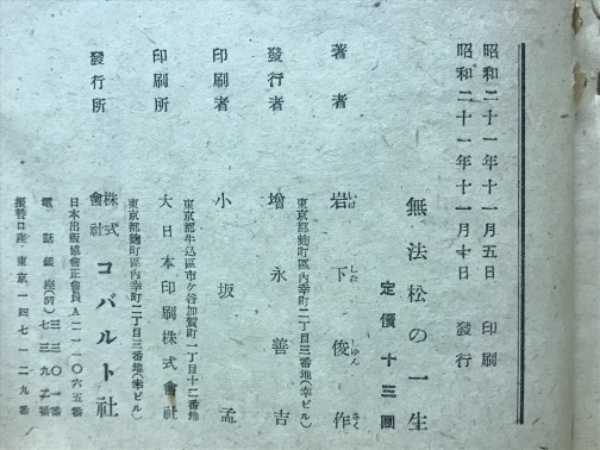 昭和二十一年十一月五日 印刷
昭和二十一年十一月十日 發行
無法松の一生
定價十三圓
著者 岩下俊作
いは した しゅん さく
東京都麴町區內幸町二丁目三番地(幸ビル)
發行者 增永善吉
印刷者 小坂孟
東京都牛込區市ケ谷加賀町一丁目十二番地
印刷所 大日本印刷株式會社
東京都麴町區內幸町二丁目三番地(幸ビル)
發行所 株式會社 コバルト社
日本出版協會正會員A二一一〇六五番
電話銀座(57)三三〇一番 七三九二番
振替口座東京一四七一二九番